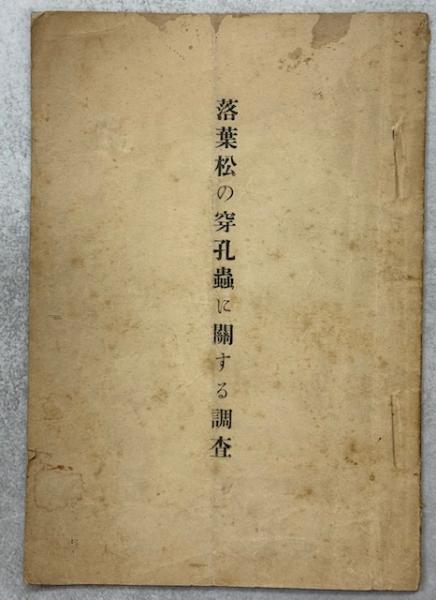 落葉松の穿孔蟲に關する調査